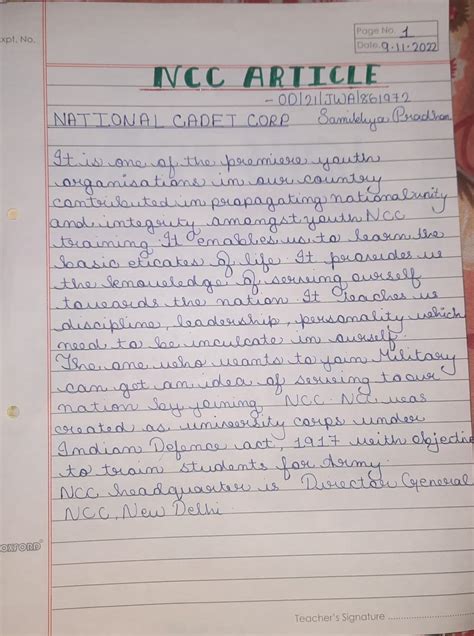 Expt. No.
Page No. 1
Date. 9.11.2022
NCC ARTICLE
- OD|21|JWA|861972
NATIONAL CADET CORP Samikhya Pradhan
It is one of the premiere youth
organisations in our country
contributed in propagating national unity
and integrity amongst youth NCC
training. It enables us to learn the
basic eticates of life. It provides us
the knowledge of serving ourself
towards the nation. It teaches us
discipline, leadership, personality which
need to be inculcate in ourself.
The one who wants to join Military
can got an idea of serving to our
nation by joining NCC. NCC was
created as university corps under
Indian Defence act, 1917 with objective
to train students for Army.
NCC headquarter is Director General
NCC, New Delhi.
OXFORD
Teacher's Signature